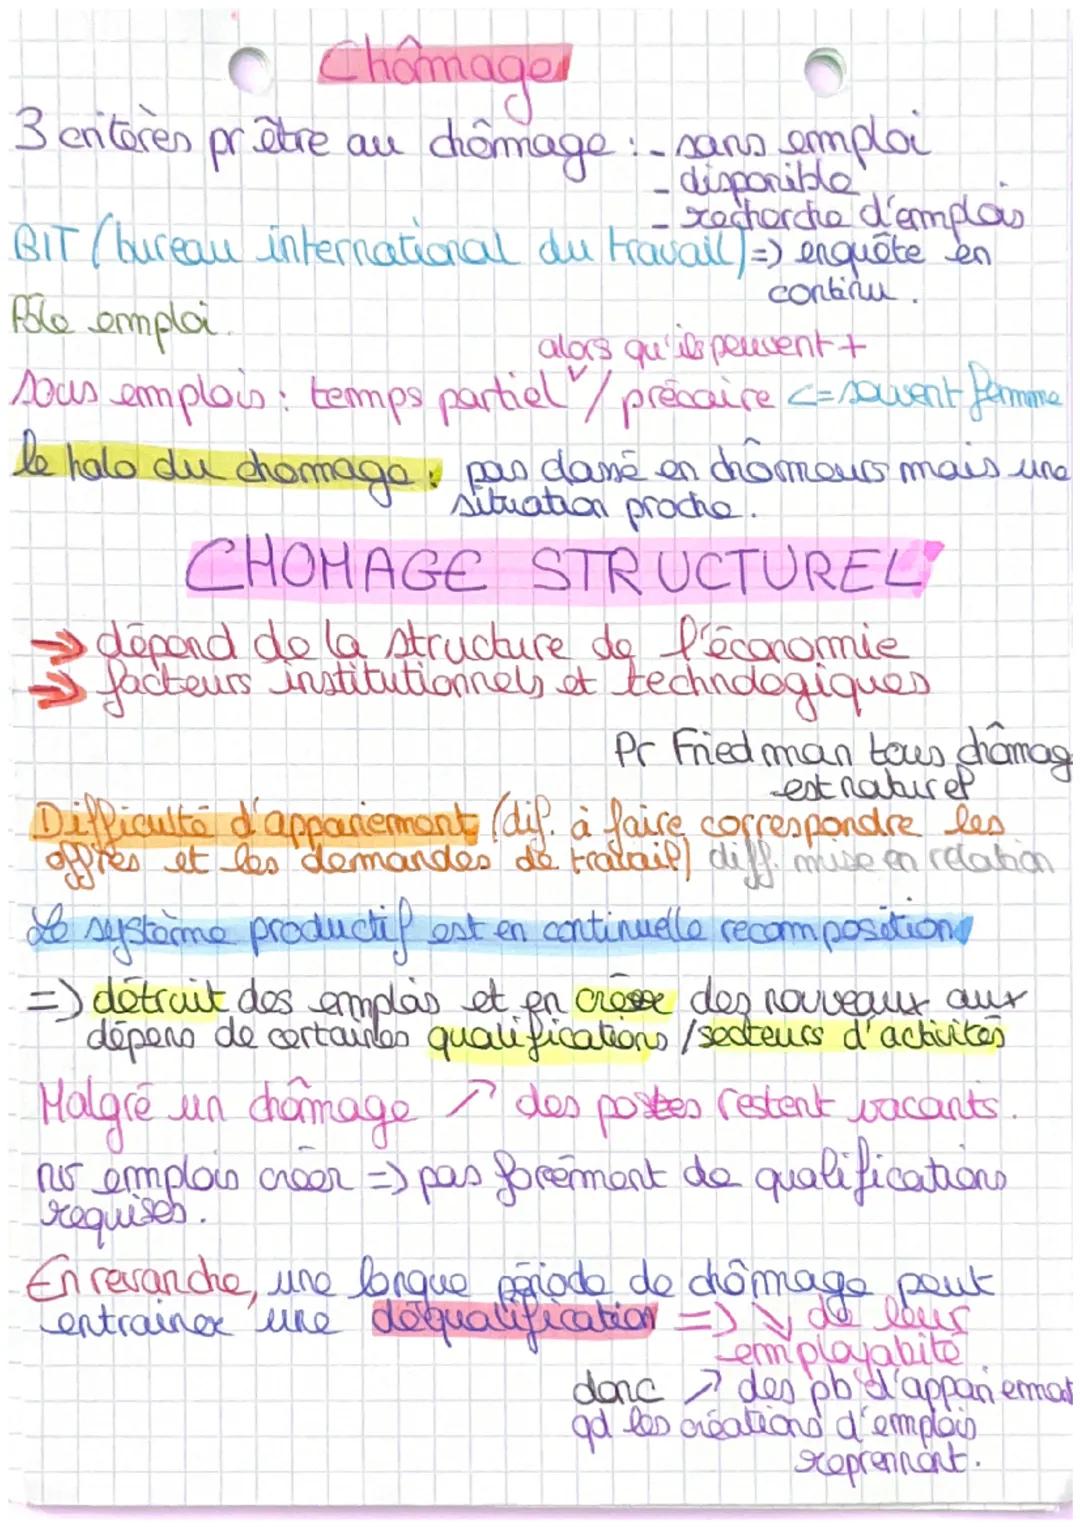 Chômage
3 critères pr être au chômage : - sans emploi
- disponible
- recherche d'emplois
BIT (bureau international du travail) => enquête en
continu.
Pôle emploi.
alors qu'ils peuvent +
sous emplois : temps partiel / précaire <= souvent femme
le halo du chomage : pas classé en chômeurs mais une
situation proche.
CHOMAGE STRUCTUREL
→ dépend de la structure de l'économie
→ facteurs institutionnels et technologiques
Pr Friedman tous chômag
est naturel
Difficulté d'appariement (dif. à faire correspondre les
offres et les demandes de travail) diff. mise en relation
Le système productif est en continuelle recomposition
=> détruit des emplois et en créee des nouveaux aux
dépens de certaines qualifications / secteurs d'activités
Malgré un chômage ↗ des postes restent vacants.
nv emplois créer => pas forcément de qualifications
requises.
En revanche, une longue période de chômage peut
entrainer une déqualification => ↘ de leur
employabité
donc ↗ des pb d'appariement
qd les créations d'emplois
reprennent.